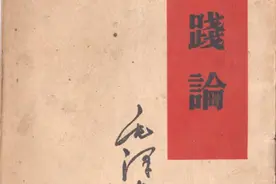 踐
論
毛澤